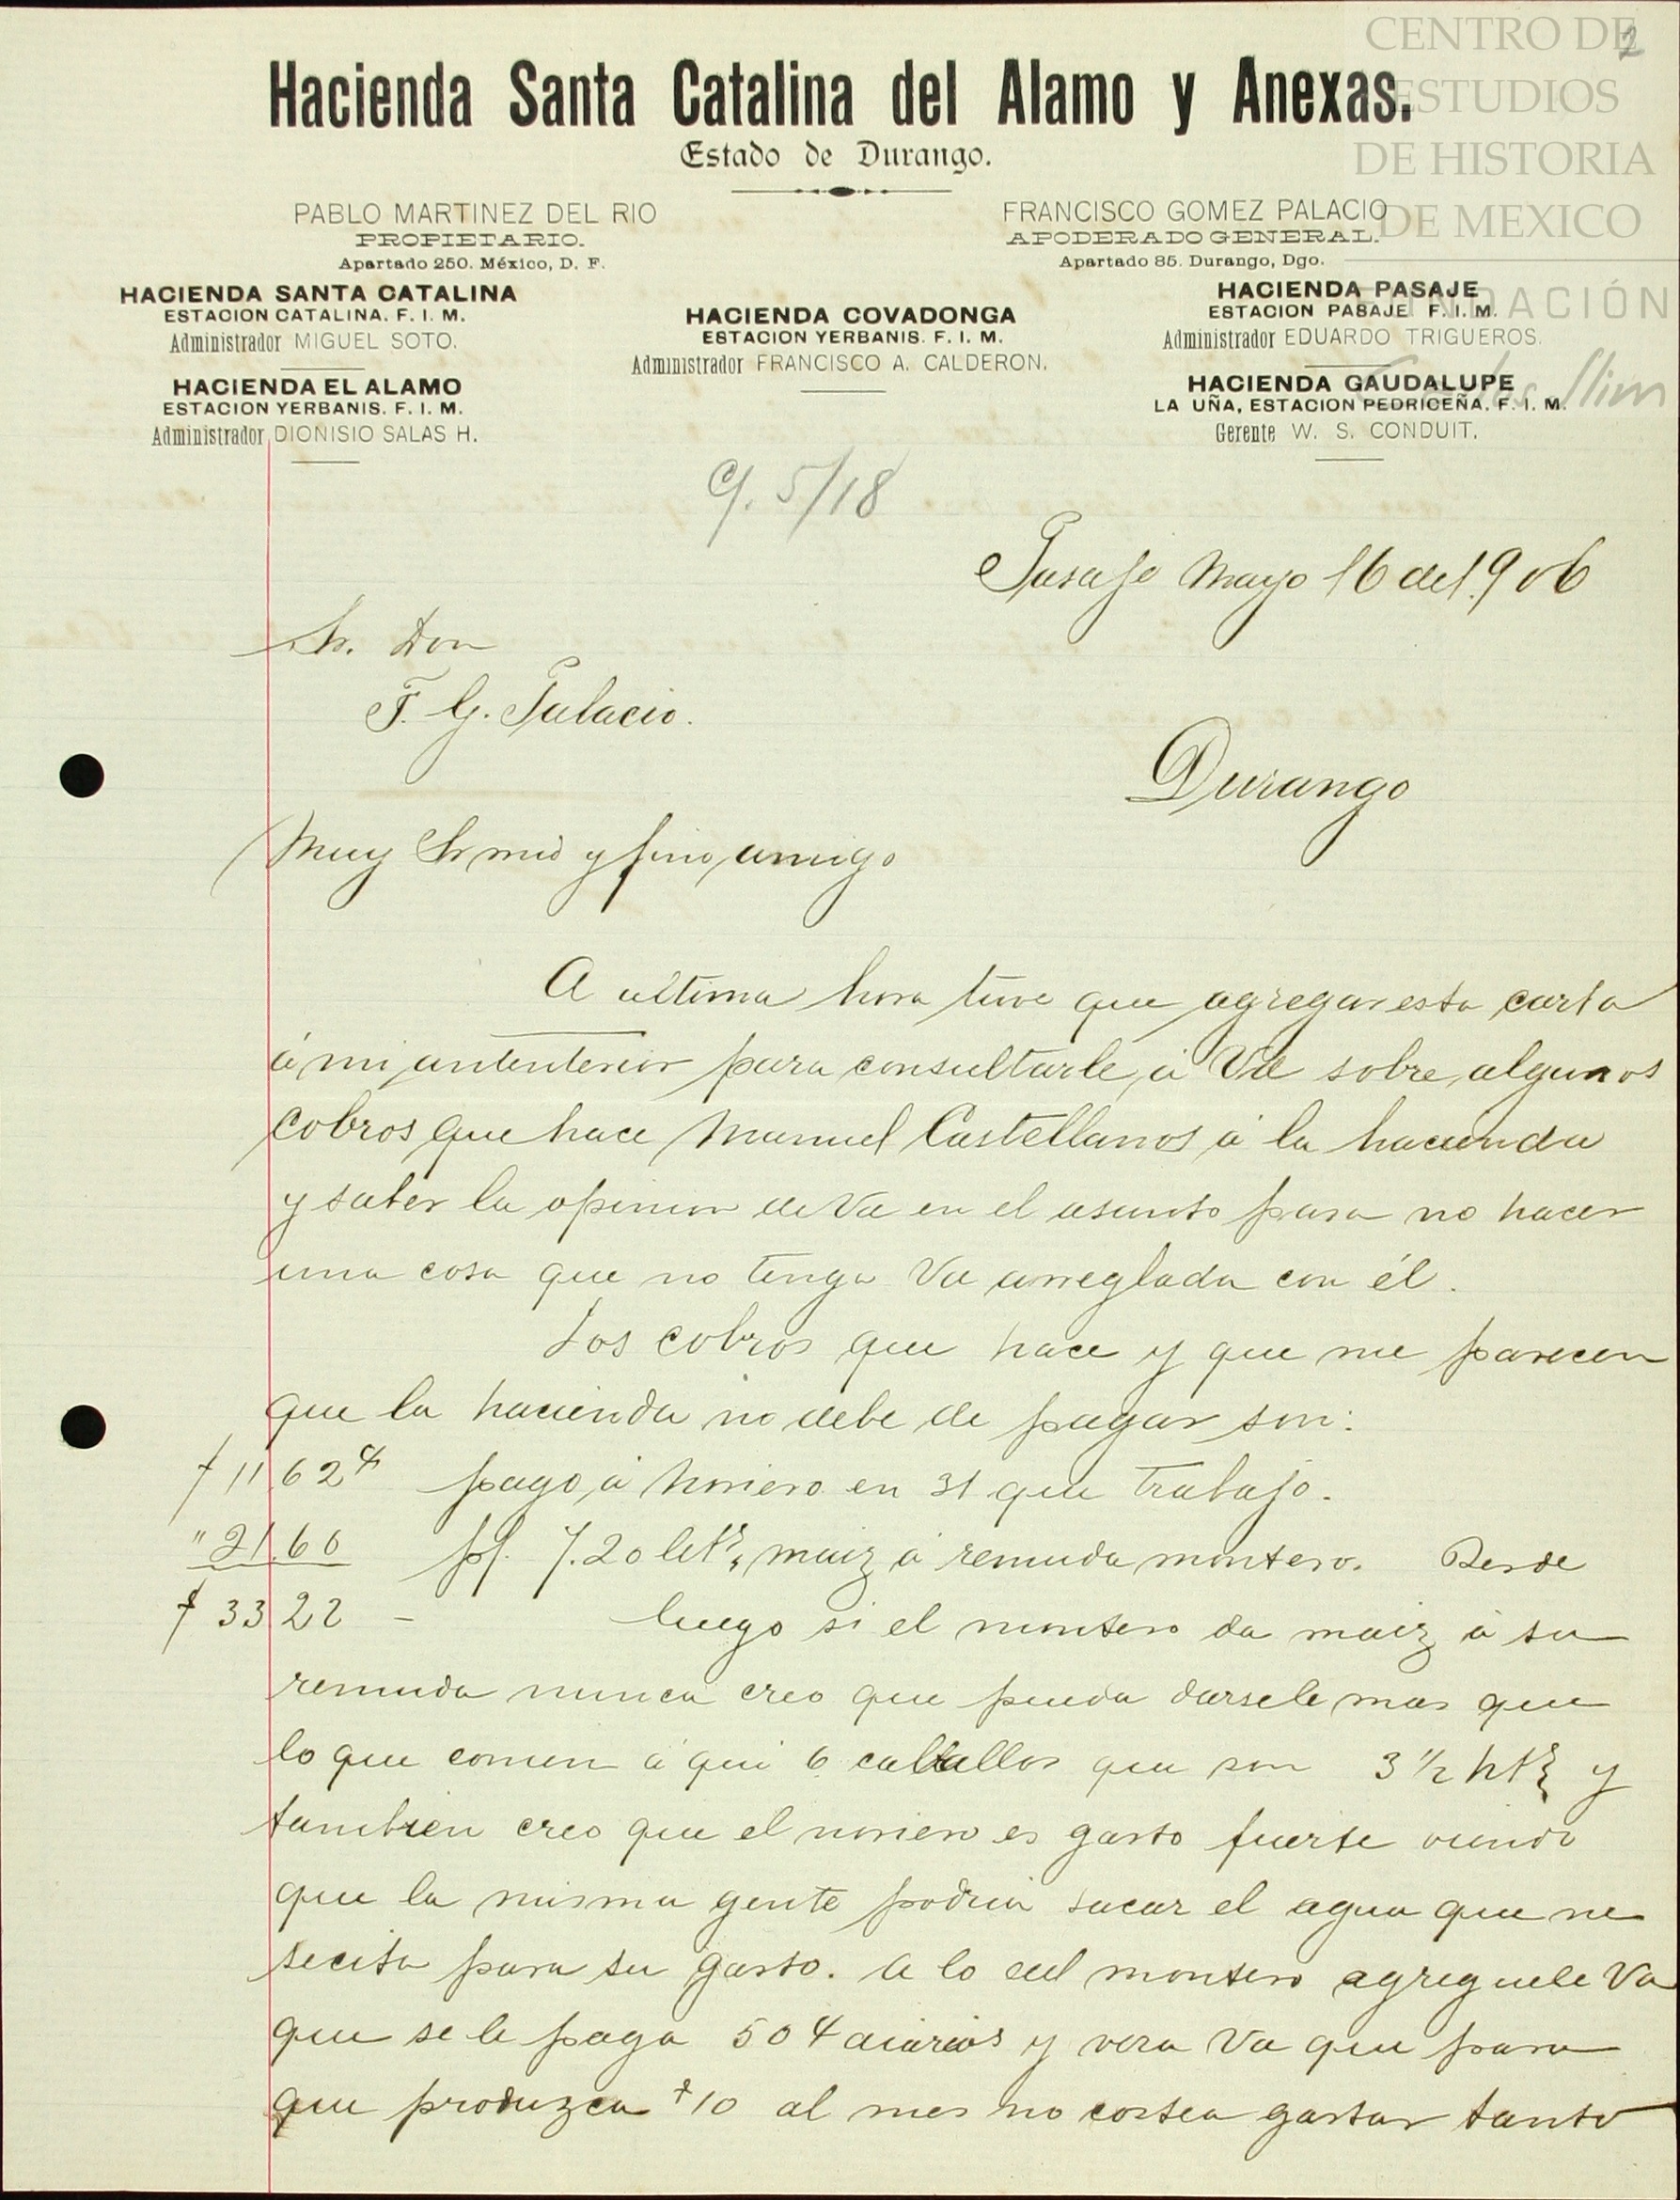 CENTRO DE
ESTUDIOS
DE HISTORIA
DE MEXICO
FUNDACIÓN
Carlos Slim
2
Hacienda Santa Catalina del Alamo y Anexas.
Estado de Durango.
PABLO MARTINEZ DEL RIO
PROPIETARIO.
Apartado 250. México, D. F.
FRANCISCO GOMEZ PALACIO
APODERADO GENERAL.
Apartado 85. Durango, Dgo.
HACIENDA SANTA CATALINA
ESTACION CATALINA. F. I. M.
Administrador MIGUEL SOTO.
HACIENDA EL ALAMO
ESTACION YERBANIS. F. I. M.
Administrador DIONISIO SALAS H.
HACIENDA COVADONGA
ESTACION YERBANIS. F. I. M.
Administrador FRANCISCO A. CALDERON.
HACIENDA PASAJE
ESTACION PASAJE F. I. M.
Administrador EDUARDO TRIGUEROS.
HACIENDA GAUDALUPE
LA UÑA, ESTACION PEDRICEÑA. F. I. M.
Gerente W. S. CONDUIT.
C/. 5/18
Pasaje Mayo 16 de 1.906
Sr. Don
F. G. Palacio.
Durango
Muy Sr mio y fino amigo
A ultima hora tuve que agregar esta carta
á mi antenterior para consultarle á Vd sobre algunos
cobros que hace Manuel Castellanos á la hacienda
y saber la opinion de Vd en el asunto para no hacer
una cosa que no tenga Vd arreglada con él.
Los cobros que hace y que me parecen
que la hacienda no debe de pagar son:
$ 11 62 ¢ pago á noriero en 31 que trabajo.
" 21.60 pf. 7.20 lits, maiz á remuda montero. Desde
$ 33 22 – luego si el montero da maiz á su
remuda nunca creo que pueda darsele mas que
lo que comen á qui 6 caballos que son 3 1/2 hts y
tambien creo que el noriero es gasto fuerte viendo
que la misma gente podria sacar el agua que ne
secita para su gasto. A lo del montero agreguele Vd
que se le paga 50 ¢ diarios y vera Vd que para
que produzca $10 al mes no costea gastar tanto